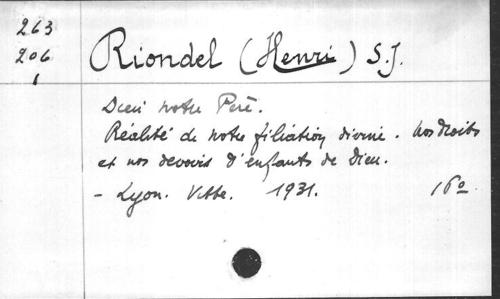 263
206
1
Riondel (Henri) S.J.
Dieu notre Père.
Réalité de notre filiation divine. Nos droits
et nos devoirs d'enfants de Dieu.
- Lyon. Vitte. 1931. 16º